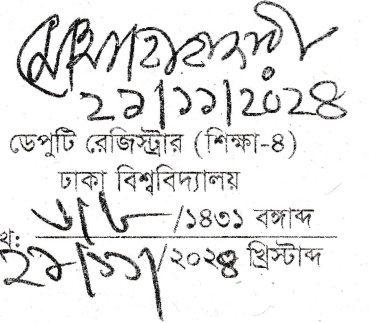 ২১/১১/২০২৪
ডেপুটি রেজিস্ট্রার (শিক্ষা-৪)
ঢাকা বিশ্ববিদ্যালয়
৬/৮/১৪৩১ বঙ্গাব্দ
খ:
২১/১১/২০২৪ খ্রিস্টাব্দ